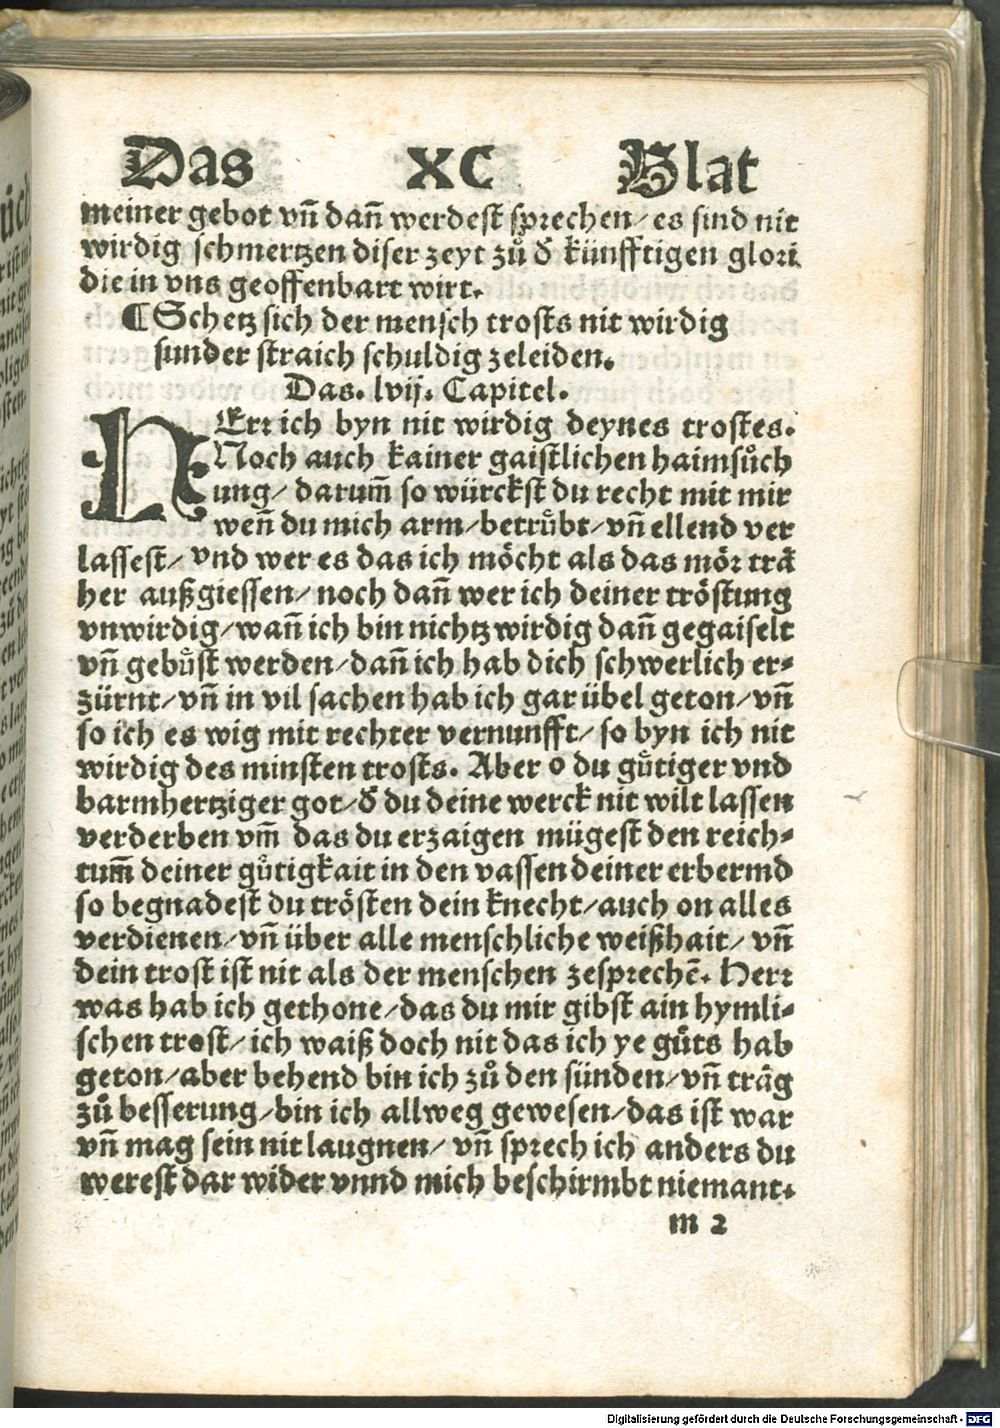 Das XC Blat
meiner gebot vn̄ dan̄ werdest sprechen/ es sind nit
wirdig schmertzen diser zeyt zů d̕ künfftigen glori
die in vns geoffenbart wirt.
¶ Schetz sich der mensch trosts nit wirdig
sunder straich schuldig zeleiden.
Das. lvij. Capitel.
HErꝛ ich byn nit wirdig deynes trostes.
Noch auch kainer gaistlichen haimsůch
ung/ darum̄ so würckst du recht mit mir
wen̄ du mich arm/ betrůbt/ vn̄ ellend ver
lassest/ vnd wer es das ich möcht als das möꝛ trä
her außgiessen/ noch dan̄ wer ich deiner tröstung
vnwirdig/ wan̄ ich bin nichtz wirdig dan̄ gegaiselt
vn̄ gebůst werden/ dan̄ ich hab dich schwerlich er-
zürnt/ vn̄ in vil sachen hab ich gar übel geton/ vn̄
so ich es wig mit rechter vernunfft/ so byn ich nit
wirdig des minsten trosts. Aber o du gůtiger vnd
barmhertziger got/ d̕ du deine werck nit wilt lassen
verderben vm̄ das du erzaigen mügest den reich-
tum̄ deiner gůtigkait in den vassen deiner erbermd
so begnadest du trösten dein knecht/ auch on alles
verdienen/ vn̄ über alle menschliche weißhait/ vn̄
dein trost ist nit als der menschen zesprechē. Herꝛ
was hab ich gethone/ das du mir gibst ain hymli-
schen trost/ ich waiß doch nit das ich ye gůts hab
geton/ aber behend bin ich zů den sünden/ vn̄ träg
zů besserung/ bin ich allweg gewesen/ das ist war
vn̄ mag sein nit laugnen/ vn̄ sprech ich anders du
werest dar wider vnnd mich beschirmbt niemant.
m 2
Digitalisierung gefördert durch die Deutsche Forschungsgemeinschaft - DFG